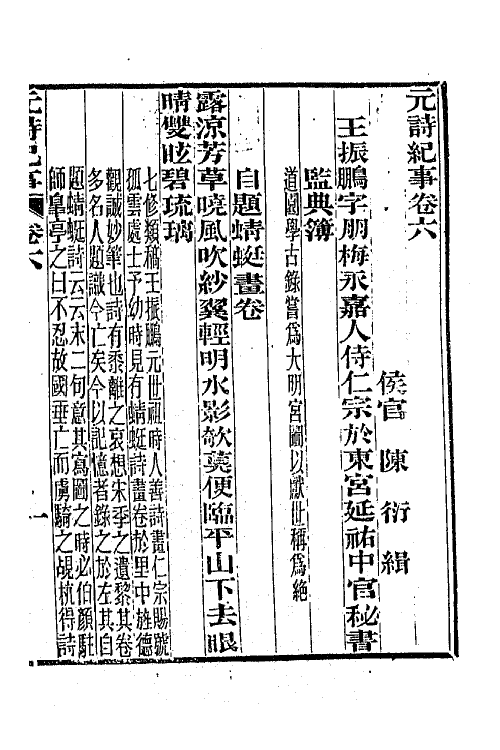 元詩紀事卷六
侯官 陳衍 緝
王振鵬字朋梅永嘉人侍仁宗於東宮延祐中官秘書
監典簿
道園學古錄嘗爲大明宮圖以獻世稱爲絶
自題蜻蜓畫卷
露涼芳草曉風吹紗翼輕明水影欹莫便臨平山下去眼
睛雙眩碧琉璃
七修類稿王振鵬元世祖時人善詩畫仁宗賜號
孤雲處士予幼時見有蜻蜓詩畫卷於里中旌德
觀誠妙筆也詩有黍離之哀想宋季之遺黎其卷
多名人題識今亡矣今以記憶者錄之於左其自
題蜻蜓詩云云末二句意其寫圖之時必伯顏駐
師臯亭之日不忍故國垂亡而虜騎之覘杭得詩
元詩紀事 卷六 一